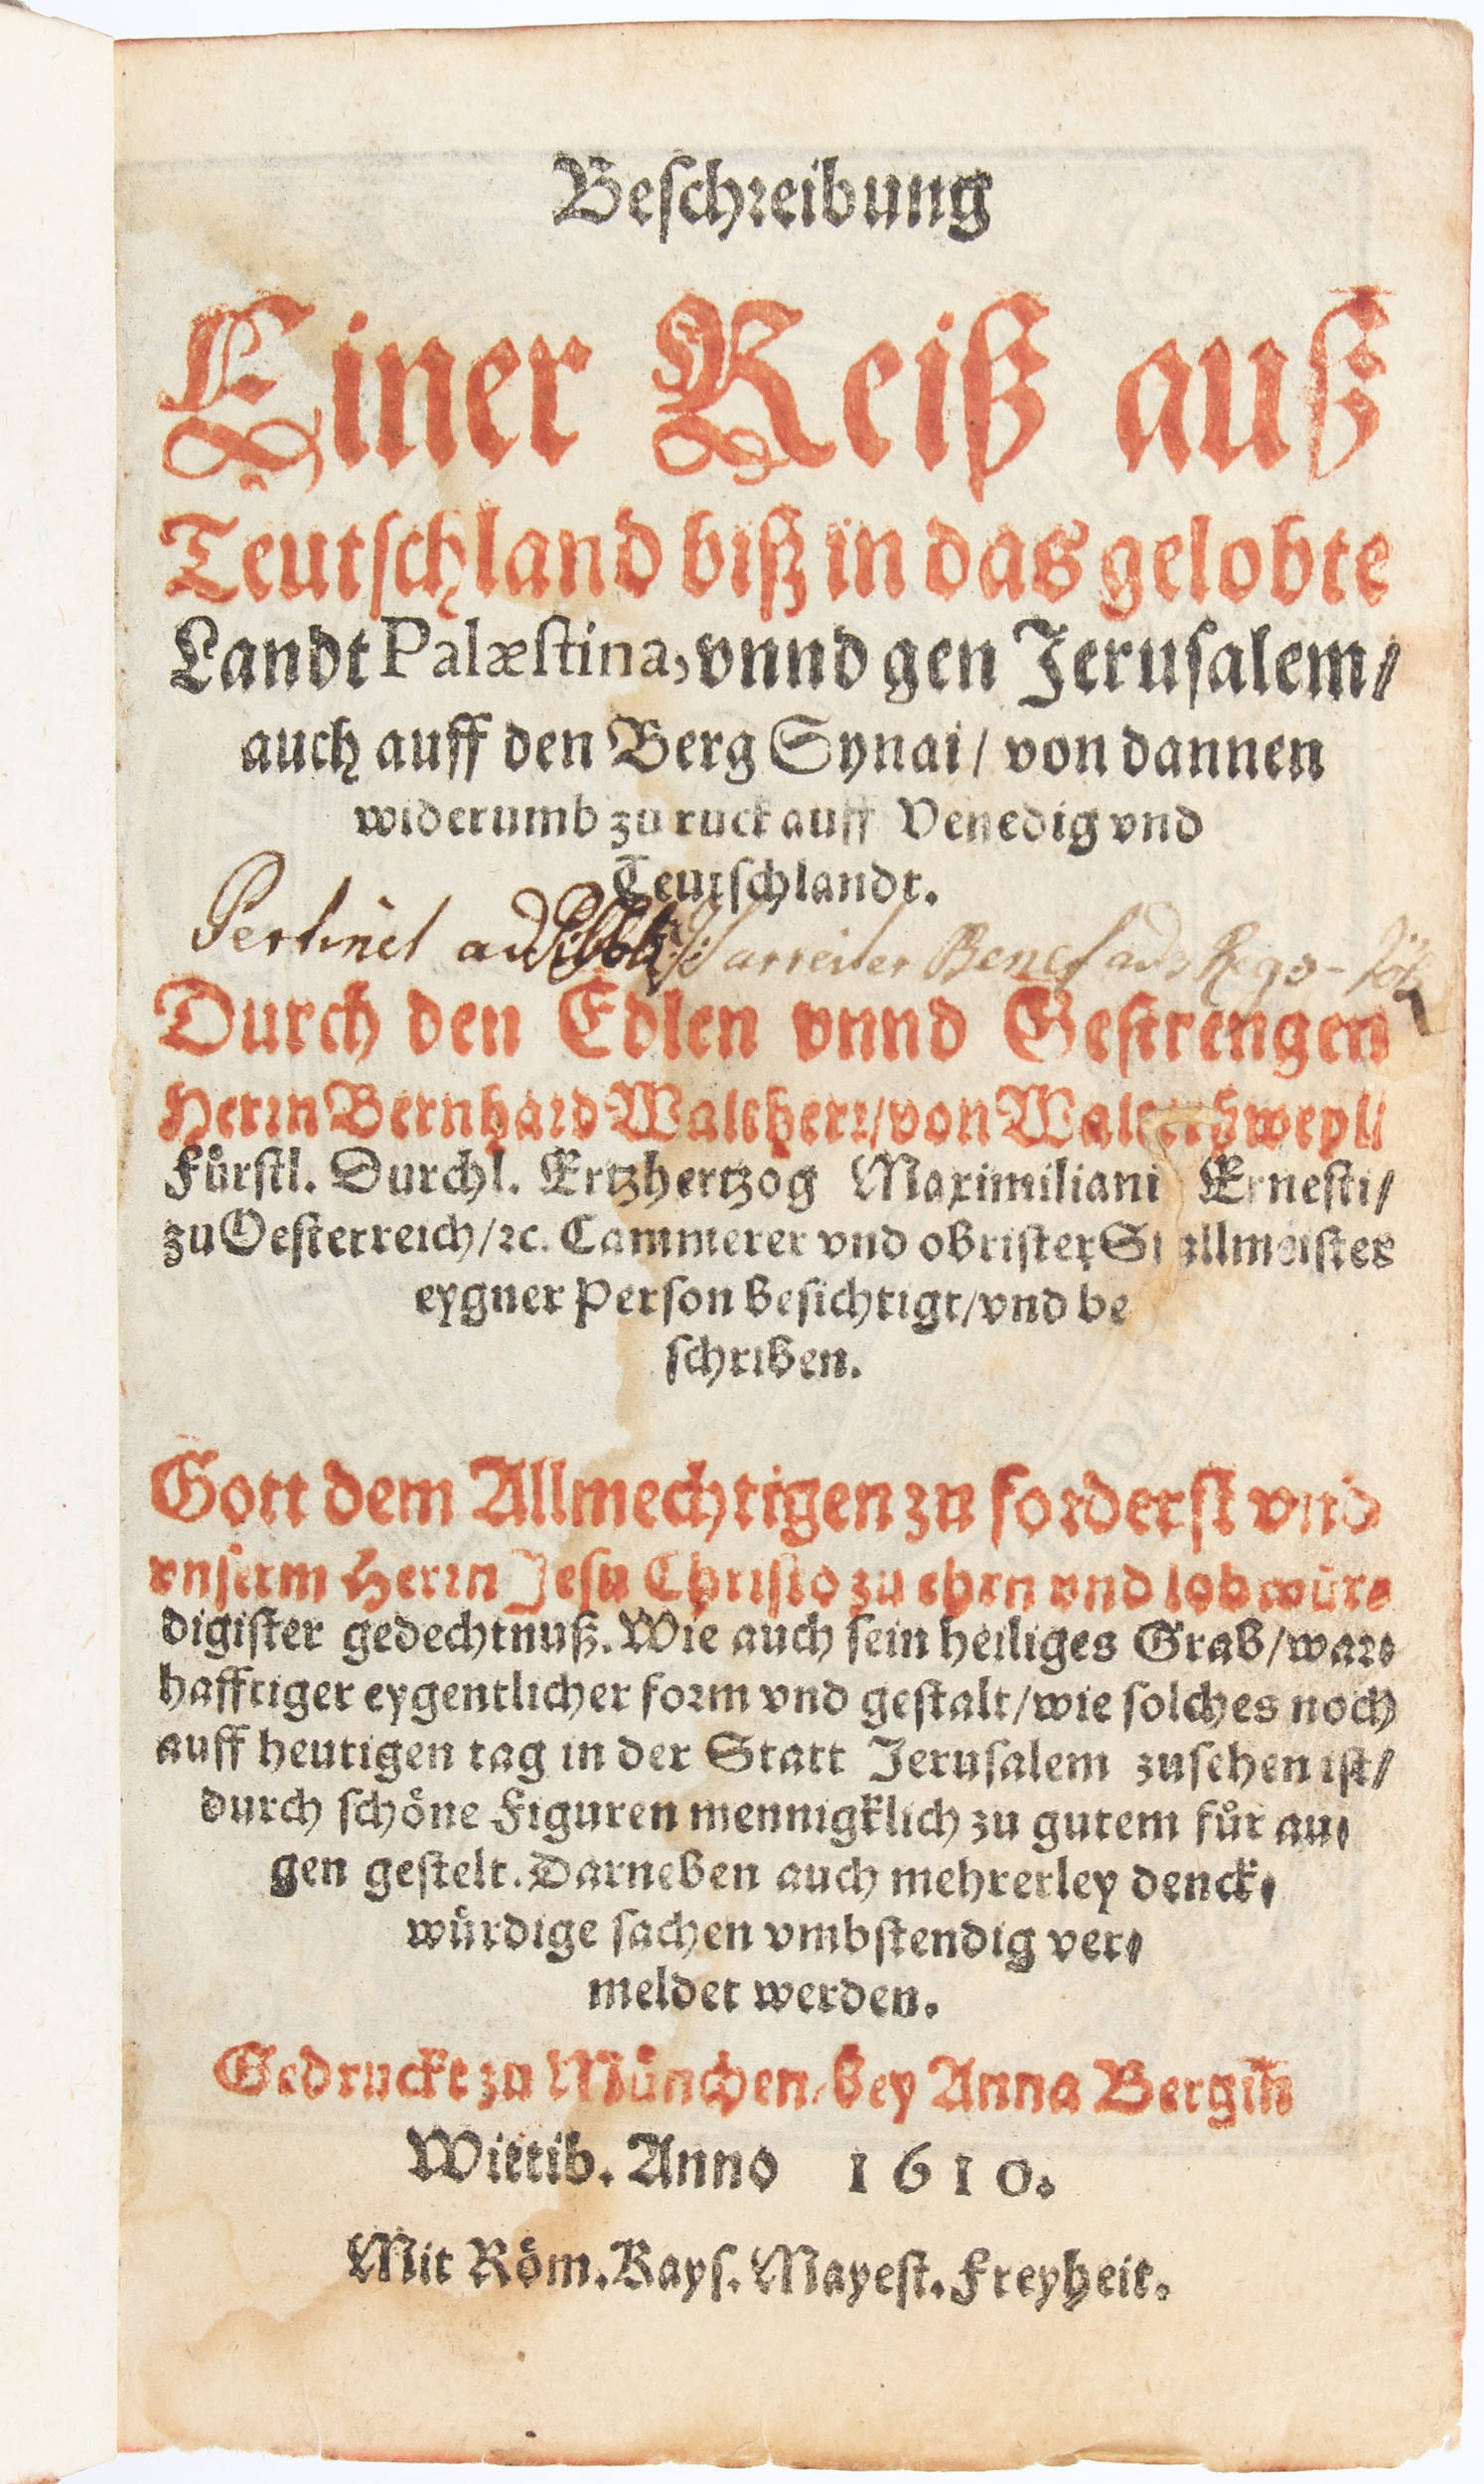 Beschreibung
Einer Reiß auß
Teutschland biß in das gelobte
Landt Palæstina, vnnd gen Jerusalem/
auch auff den Berg Synai/ von dannen
widerumb zu ruck auff Venedig vnd
Teutschlandt.
Pertinet ad
Durch den Edlen vnnd Gestrengen
Herrn Bernhard Waltherr/ von
Fürstl. Durchl. Ertzhertzog Maximiliani Ernesti/
zu Oesterreich/ ꝛc. Cammerer vnd obrister Stallmeister
eygner Person besichtigt/ vnd be
schriben.
Gott dem Allmechtigen zu forderst vnd
vnserm Herrn Jesu Christo zu ehrn vnd lobwür⸗
digister gedechtnuß. Wie auch sein heiliges Grab/ war⸗
hafftiger eygentlicher form vnd gestalt/ wie solches noch
auff heutigen tag in der Statt Jerusalem zusehen ist/
durch schöne Figuren mennigklich zu gutem für au⸗
gen gestelt. Darneben auch mehrerley denck⸗
würdige sachen vmbstendig ver⸗
meldet werden.
Gedruckt zu München/ bey Anna Bergin
Wittib. Anno 1610.
Mit Röm. Kays. Mayest. Freyheit.